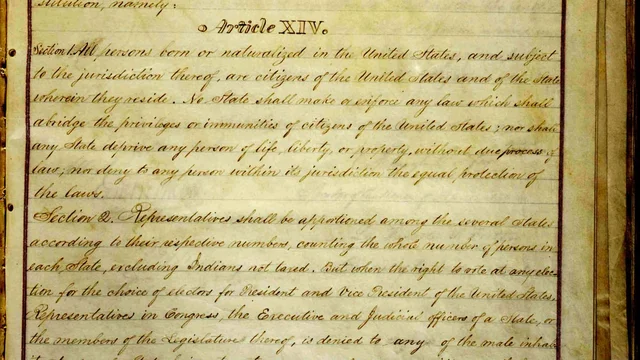 stitution, namely:
Article XIV.
Section 1. All persons born or naturalized in the United States, and subject
to the jurisdiction thereof, are citizens of the United States and of the State
wherein they reside. No State shall make or enforce any law which shall
abridge the privileges or immunities of citizens of the United States; nor shall
any State deprive any person of life, liberty, or property, without due process of
law; nor deny to any person within its jurisdiction the equal protection of
the laws.
Section 2. Representatives shall be apportioned among the several States
according to their respective numbers, counting the whole number of persons in
each State, excluding Indians not taxed. But when the right to vote at any elec-
tion for the choice of electors for President and Vice President of the United States,
Representatives in Congress, the Executive and Judicial officers of a State, or
the members of the Legislature thereof, is denied to any of the male inhab